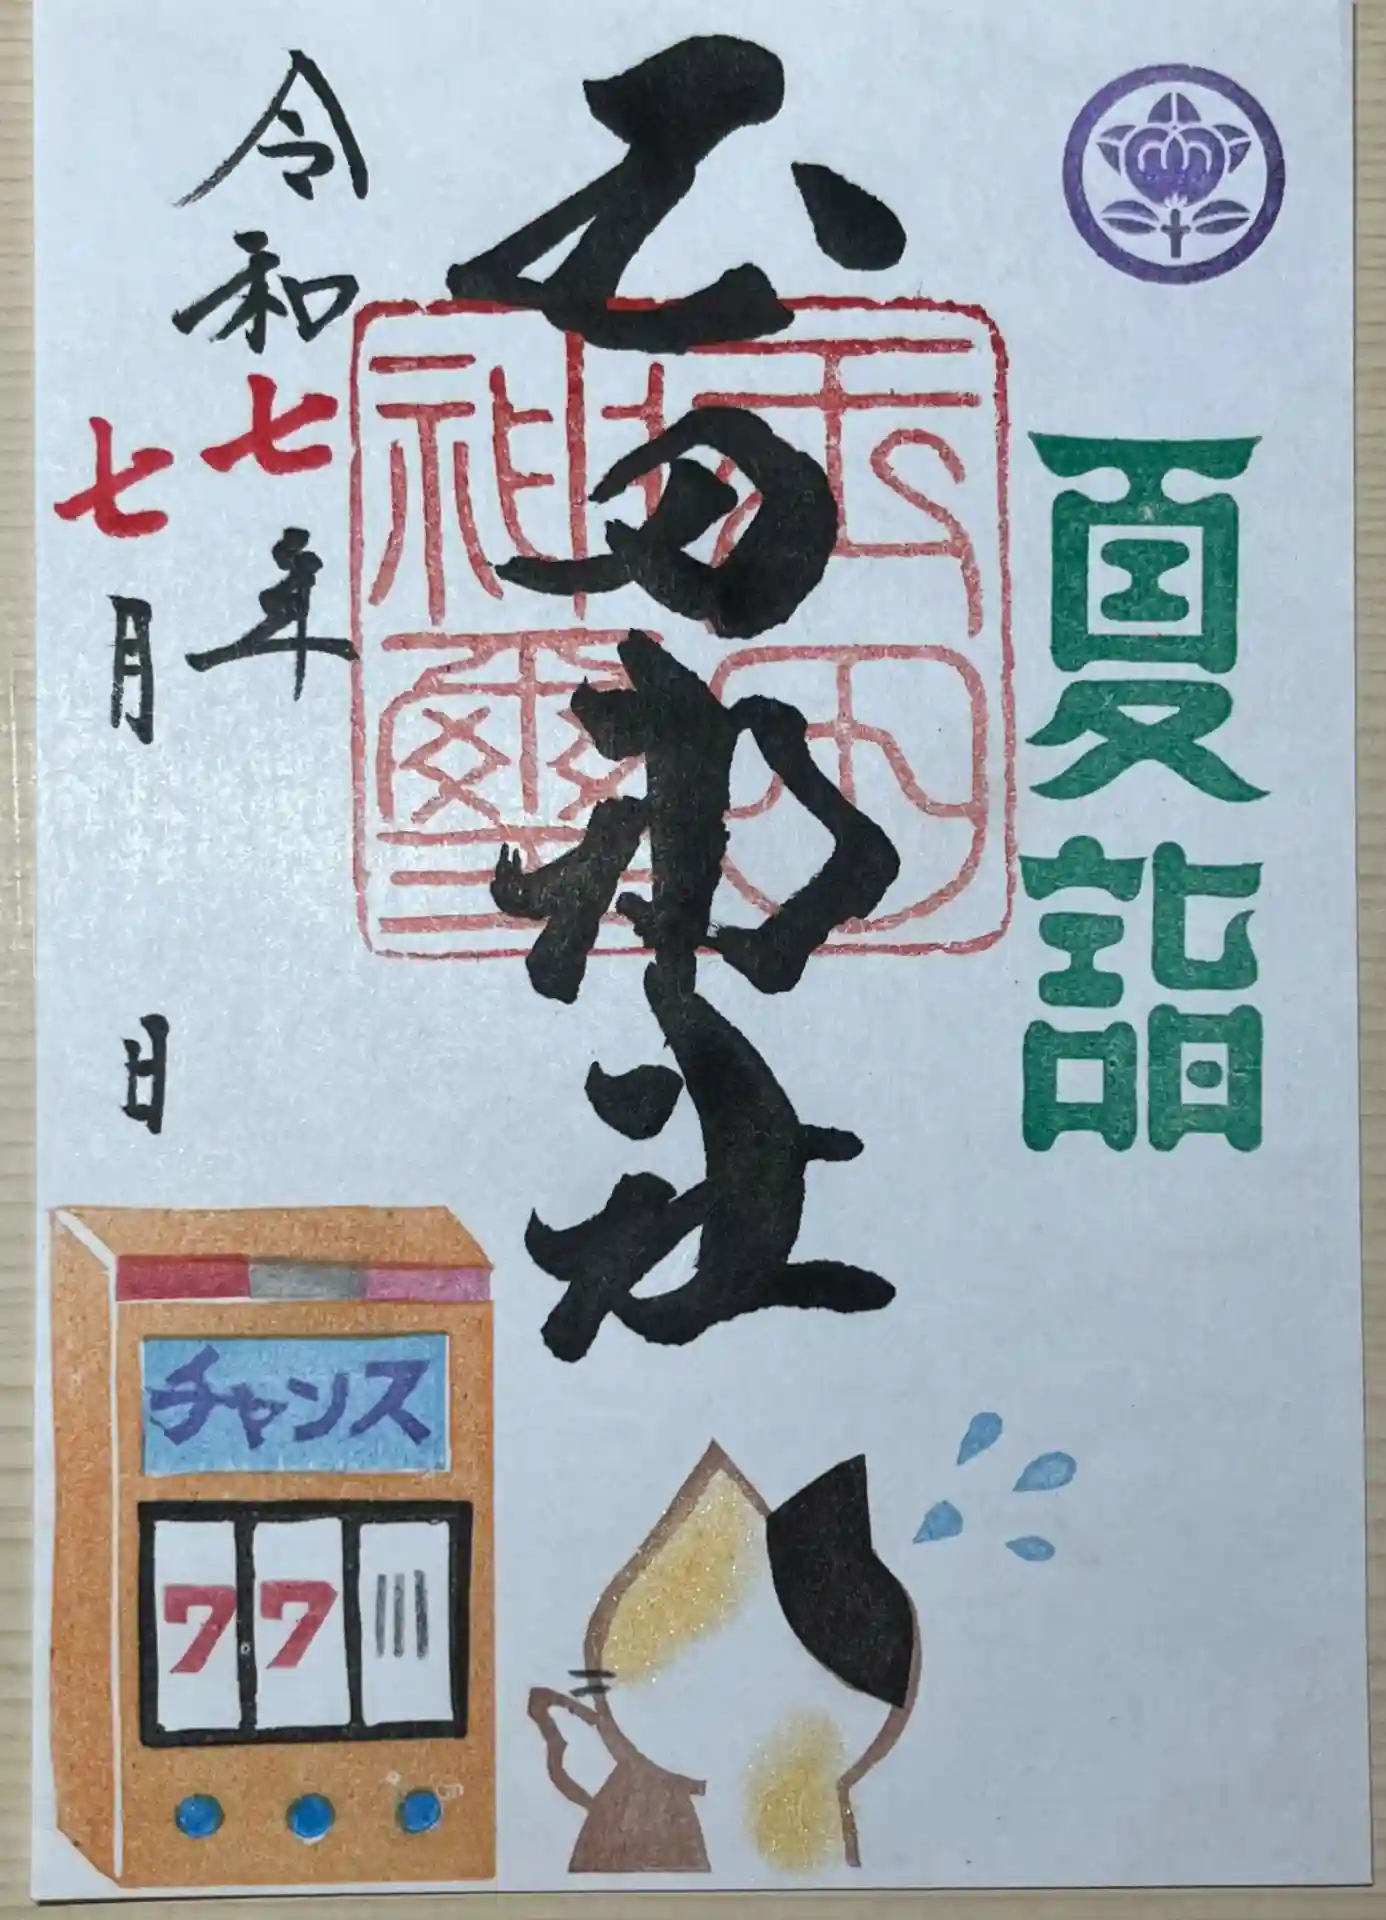 夏詣
玉田神社
令和七年
七月 日
チャンス
77